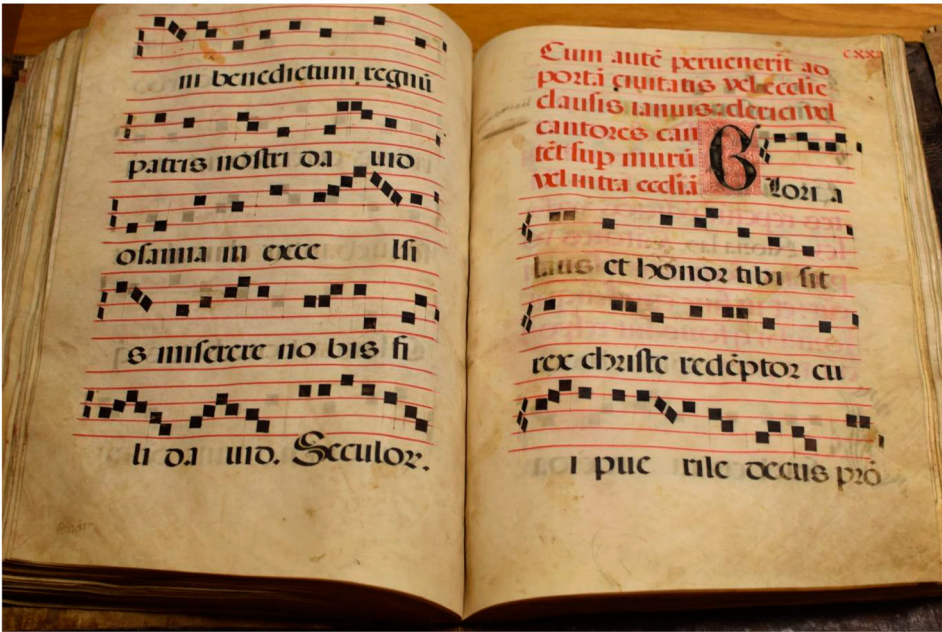 in benedictum regnū
patris nostri da uid
osanna in exce lsi
s miserere no bis fi
li da uid. Seculor.
Cum autē peruenerit ao
portā ciuitatis vel ecclie
clausis ianuis clerici vel
cantores can
tēt sup murū
vel intra eccliā
CXX
G Lori a
laus et honor tibi sit
rex christe redēptor cu
i pue rile decus prō